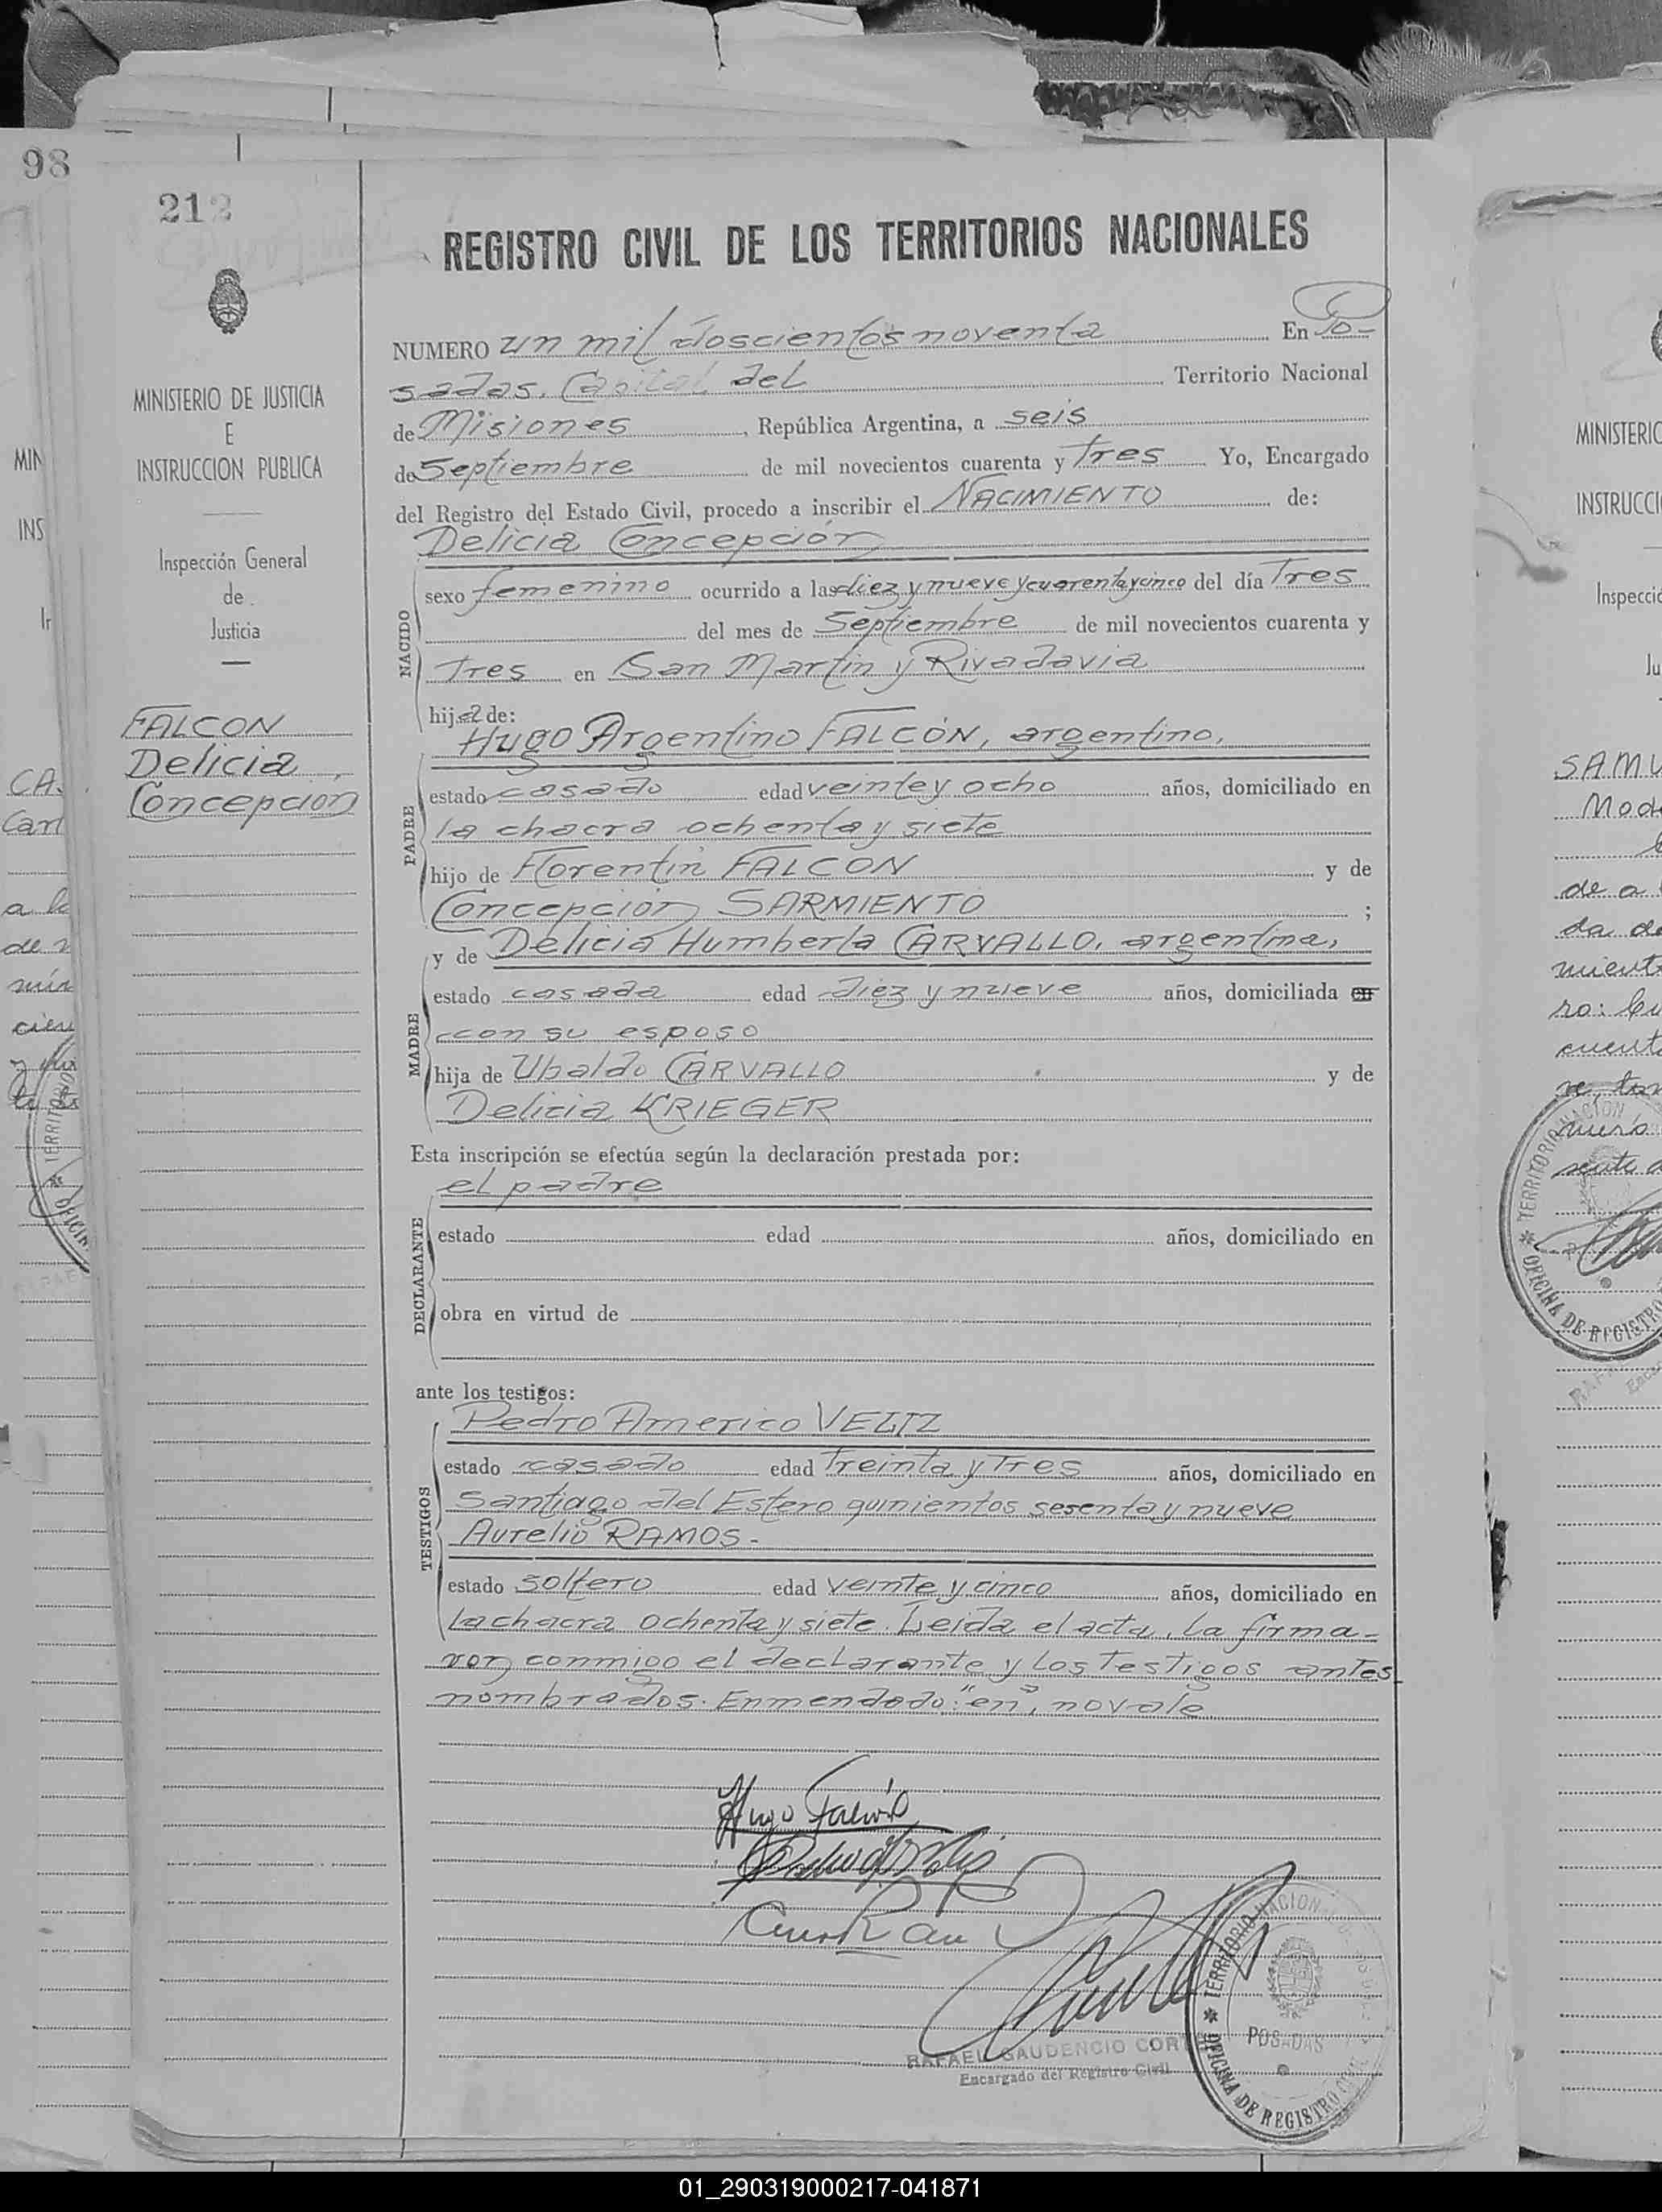 98
212
REGISTRO CIVIL DE LOS TERRITORIOS NACIONALES
NUMERO un mil doscientos noventa En Po-
sadas, Capital del Territorio Nacional
de Misiones, República Argentina, a seis
de Septiembre de mil novecientos cuarenta y Tres Yo, Encargado
del Registro del Estado Civil, procedo a inscribir el NACIMIENTO de:
Delicia Concepción
NACIDO
sexo femenino ocurrido a las diez y nueve y cuarenta y cinco del día Tres
del mes de Septiembre de mil novecientos cuarenta y
Tres en San Martín y Rivadavia
hija de:
Hugo Argentino FALCÓN, argentino,
PADRE
estado casado edad veinte y ocho años, domiciliado en
la chacra ochenta y siete
hijo de Florentin FALCON y de
Concepción SARMIENTO ;
y de Delicia Humberta CARVALLO, argentina,
MADRE
estado casada edad diez y nueve años, domiciliada en
ccon su esposo
hija de Ubaldo CARVALLO y de
Delicia KRIEGER
Esta inscripción se efectúa según la declaración prestada por:
el padre
DECLARANTE
estado edad años, domiciliado en
obra en virtud de
ante los testigos:
Pedro Americo VELIZ
TESTIGOS
estado casado edad Treinta y Tres años, domiciliado en
Santiago del Estero quinientos sesenta y nueve
Aurelio RAMOS.-
estado soltero edad veinte y cinco años, domiciliado en
la chacra ochenta y siete. Leida el acta, la firma-
ron conmigo el declarante y los Testigos antes
nombrados. Enmendado: "en", no vale
Hugo Falcón
RAFAEL GAUDENCIO CORT
Encargado del Registro Civil
TERRITORIO NACION
POSADAS
OFICINA DE REGISTRO
MINISTERIO DE JUSTICIA
E
INSTRUCCION PUBLICA
Inspección General
de
Justicia
FALCON
Delicia
Concepción
MIN
INS
CA
Carl
a la
de
min
TERRITORIO
OFICIN
MINISTERIO
INSTRUCCI
Inspecció
Ju
SAMU
Mod
de a
da de
mient
ro:
cuent
TERRITORIO NACION
OFICINA DE REGISTRO
01_290319000217-041871